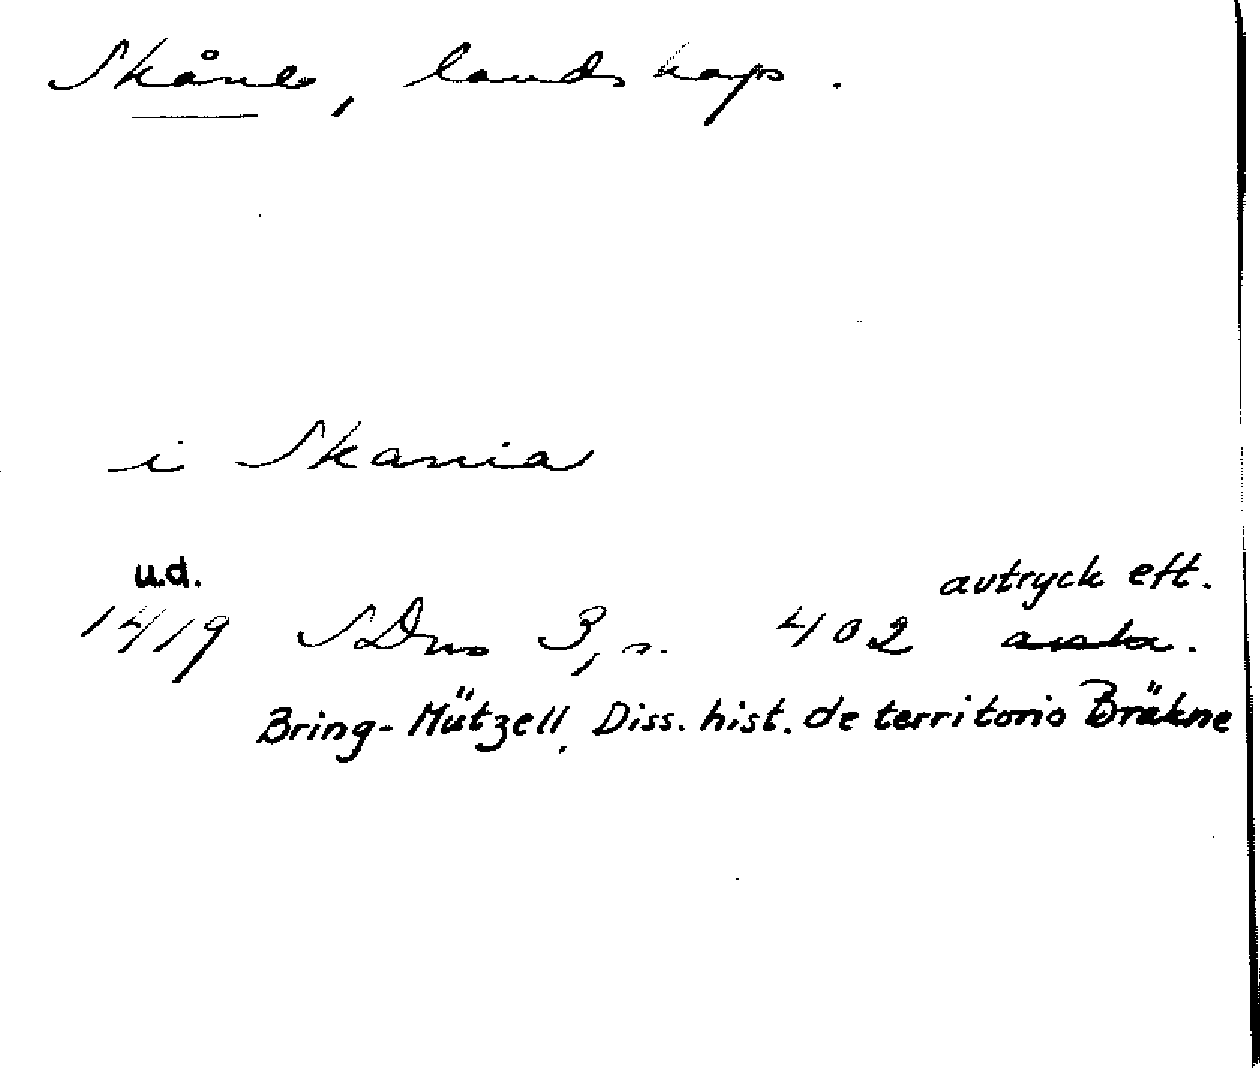 Skåne, landskap.
i Skania
u.d.
avtryck eft.
1419 SDns 3, s. 402
Bring-Mützell, Diss. hist. de territorio Bräkne